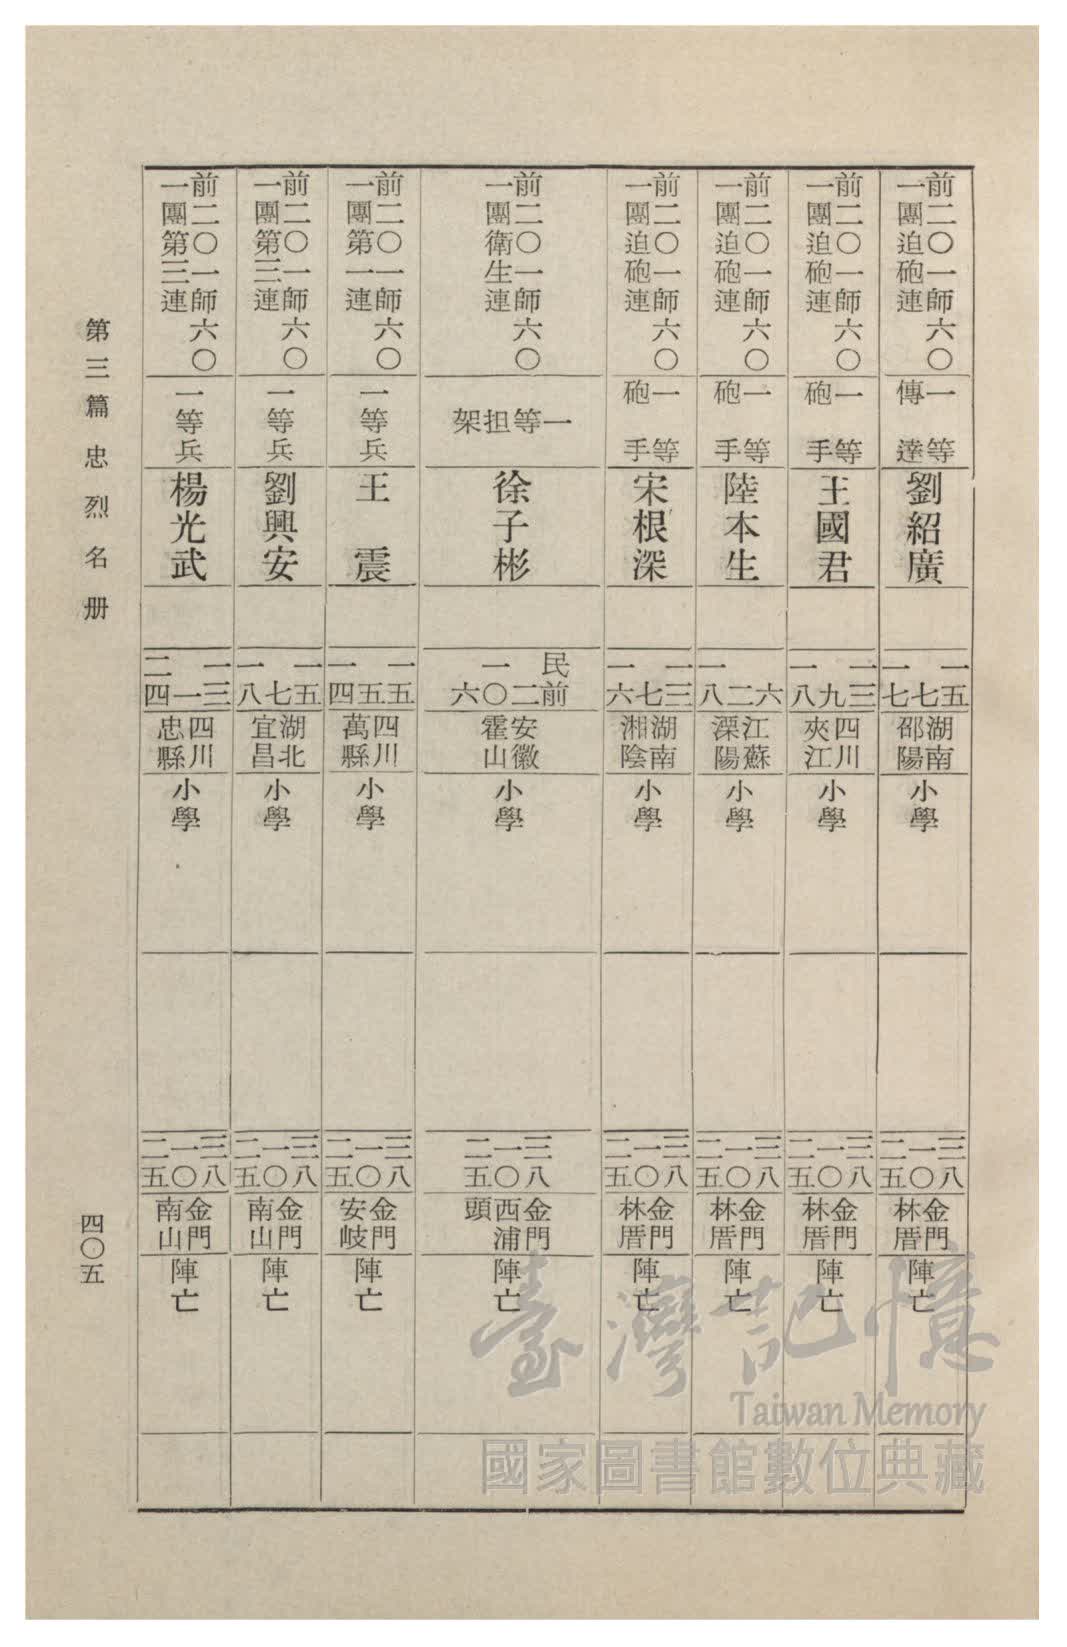 前二〇一師六〇
一團迫砲連
一等
傳達
劉紹廣
一五
七
一七
湖南
邵陽
小學
三八
一〇
二五
金門
林厝
陣亡
前二〇一師六〇
一團迫砲連
一等
砲手
王國君
一三
九
一八
四川
夾江
小學
三八
一〇
二五
金門
林厝
陣亡
前二〇一師六〇
一團迫砲連
一等
砲手
陸本生
六
二
一八
江蘇
溧陽
小學
三八
一〇
二五
金門
林厝
陣亡
前二〇一師六〇
一團迫砲連
一等
砲手
宋根深
一三
七
一六
湖南
湘陰
小學
三八
一〇
二五
金門
林厝
陣亡
前二〇一師六〇
一團衛生連
一等担架
徐子彬
民前
二
一〇
六
安徽
霍山
小學
三八
一〇
二五
金門
西浦
頭
陣亡
前二〇一師六〇
一團第一連
一等兵
王震
一五
五
一四
四川
萬縣
小學
三八
一〇
二五
金門
安岐
陣亡
前二〇一師六〇
一團第三連
一等兵
劉興安
一五
七
一八
湖北
宜昌
小學
三八
一〇
二五
金門
南山
陣亡
前二〇一師六〇
一團第三連
一等兵
楊光武
一三
一
二四
四川
忠縣
小學
三八
一〇
二五
金門
南山
陣亡
第三篇 忠烈名册
四〇五
臺灣記憶
Taiwan Memory
國家圖書館數位典藏